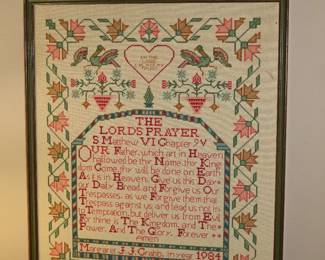 THE
LORDS PRAYER
S Matthew VI Chapter 9 V
OUR Father which art in Heaven
hallowed be thy Name thy King
dom Come thy will be done on Earth
As it is in Heaven Give us this Day
our Daily Bread And Forgive us Our
Trespasses as we Forgive them that
Trespass against us and lead us not in
to Temptation but deliver us from Evil
For thine is The Kingdom and The
Power And The Glory Forever
Amen
Margaret J. J. in year 1984